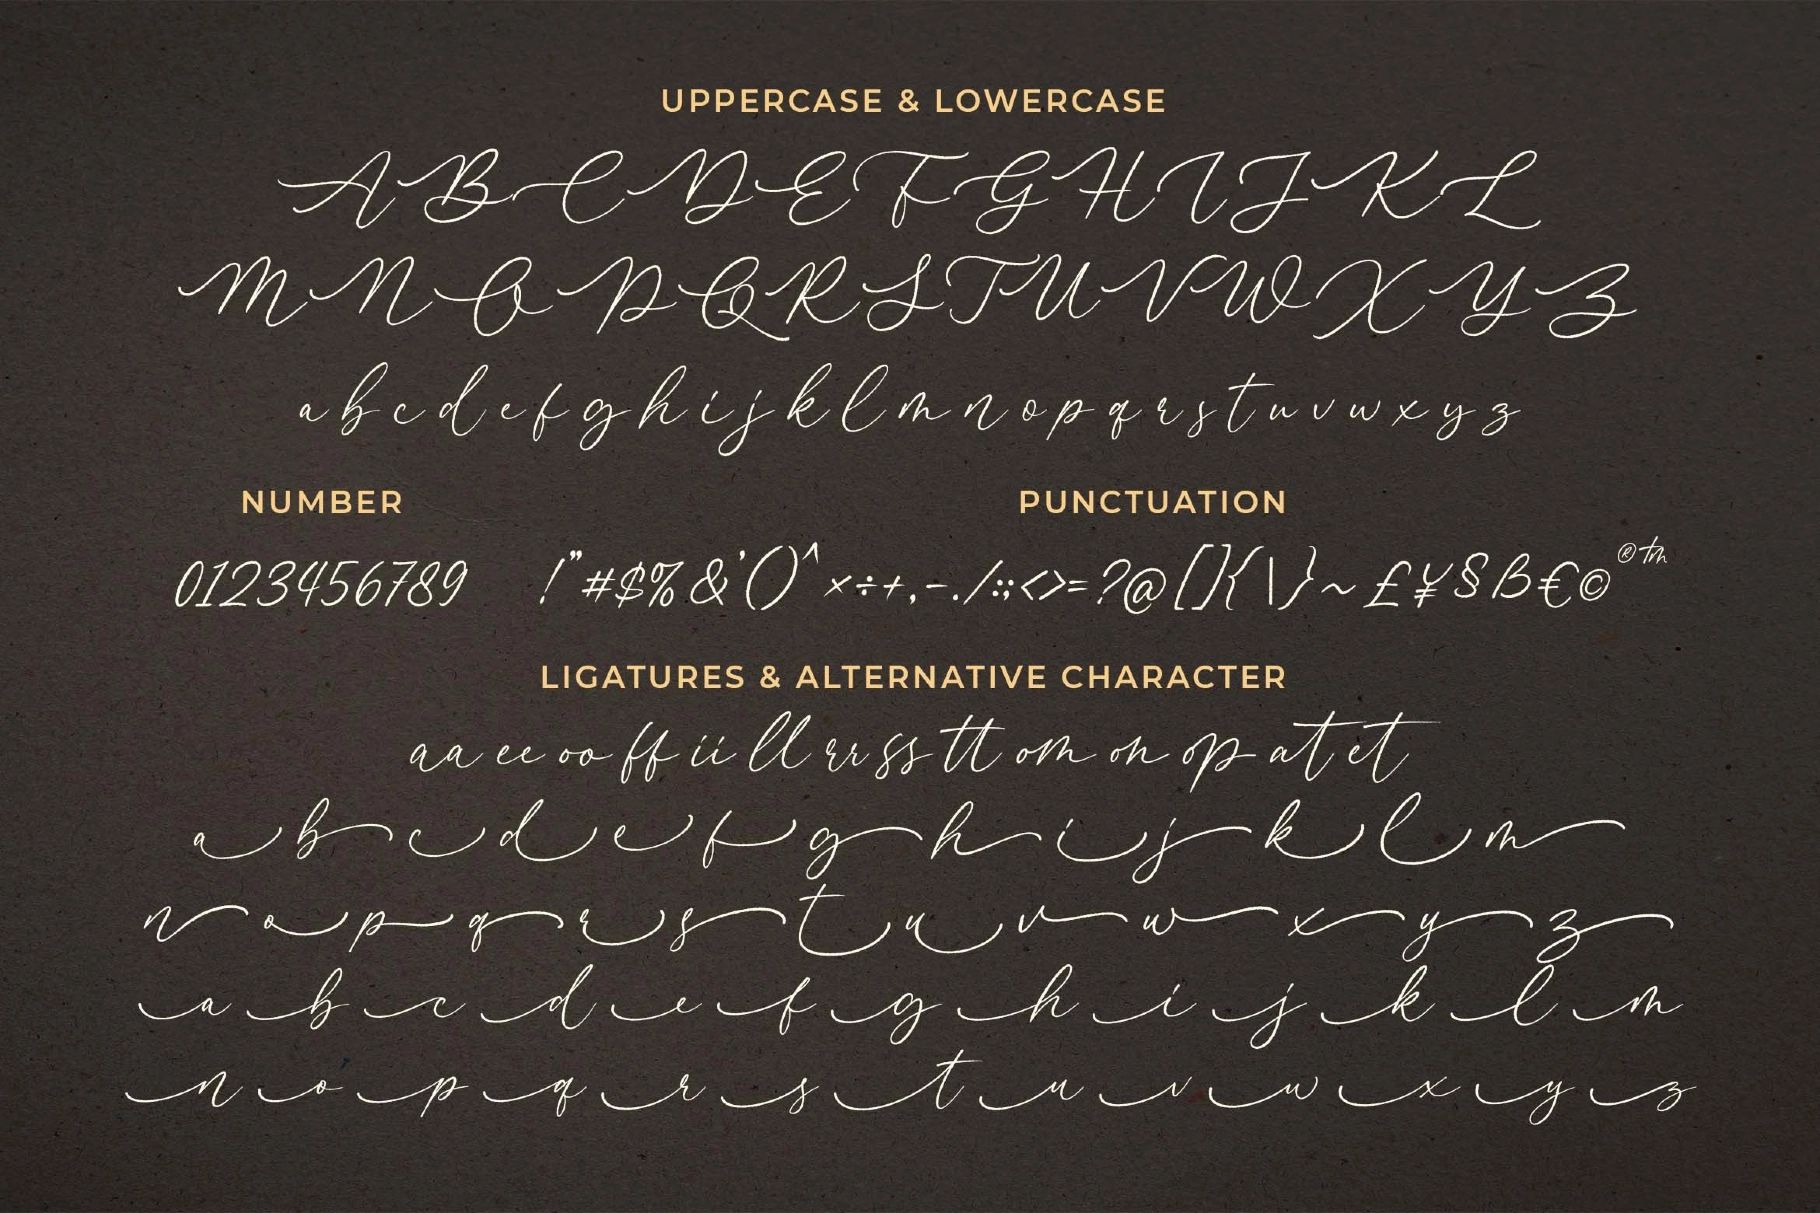 UPPERCASE & LOWERCASE
A B C D E F G H I J K L
M N O P Q R S T U V W X Y Z
a b c d e f g h i j k l m n o p q r s t u v w x y z
NUMBER
0123456789
PUNCTUATION
!"#$%&'()^×÷+,-./:;<>=?@[]{\|}~£¥§ß€©®™
LIGATURES & ALTERNATIVE CHARACTER
aa ee oo ff ii ll rr ss tt om on op at et
a b c d e f g h i j k l m
n o p q r s t u v w x y z
a b c d e f g h i j k l m
n o p q r s t u v w x y z